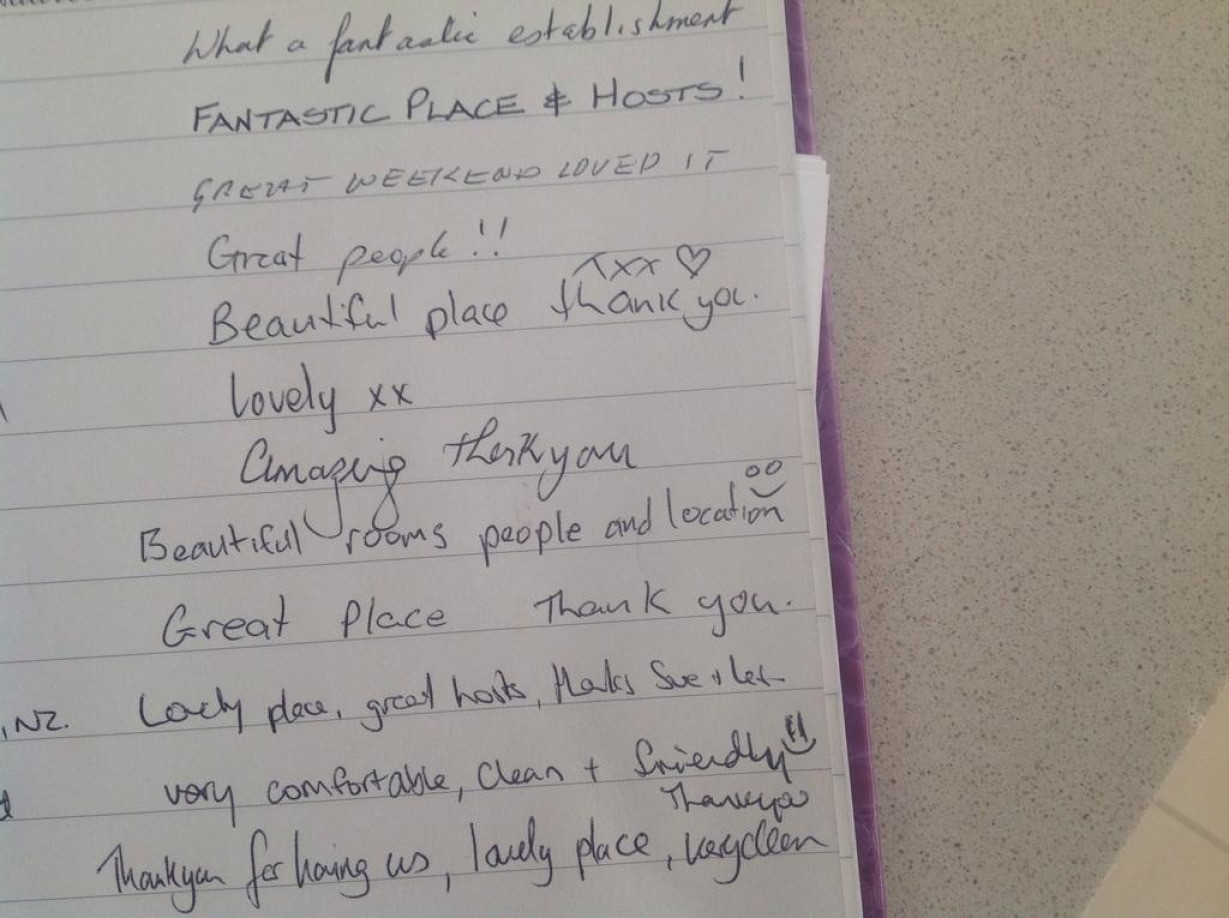 What a fantastic establishment
FANTASTIC PLACE & HOSTS!
GREAT WEEKEND LOVED IT
Great people!!
xxx ♡
Beautiful place thank you.
Lovely xx
Amazing thankyou
Beautiful rooms people and location
Great Place Thank you.
, NZ. Lovely place, great hosts, thanks Sue +
very comfortable, Clean + friendly
Thankyou
Thankyou for having us, lovely place, very clean